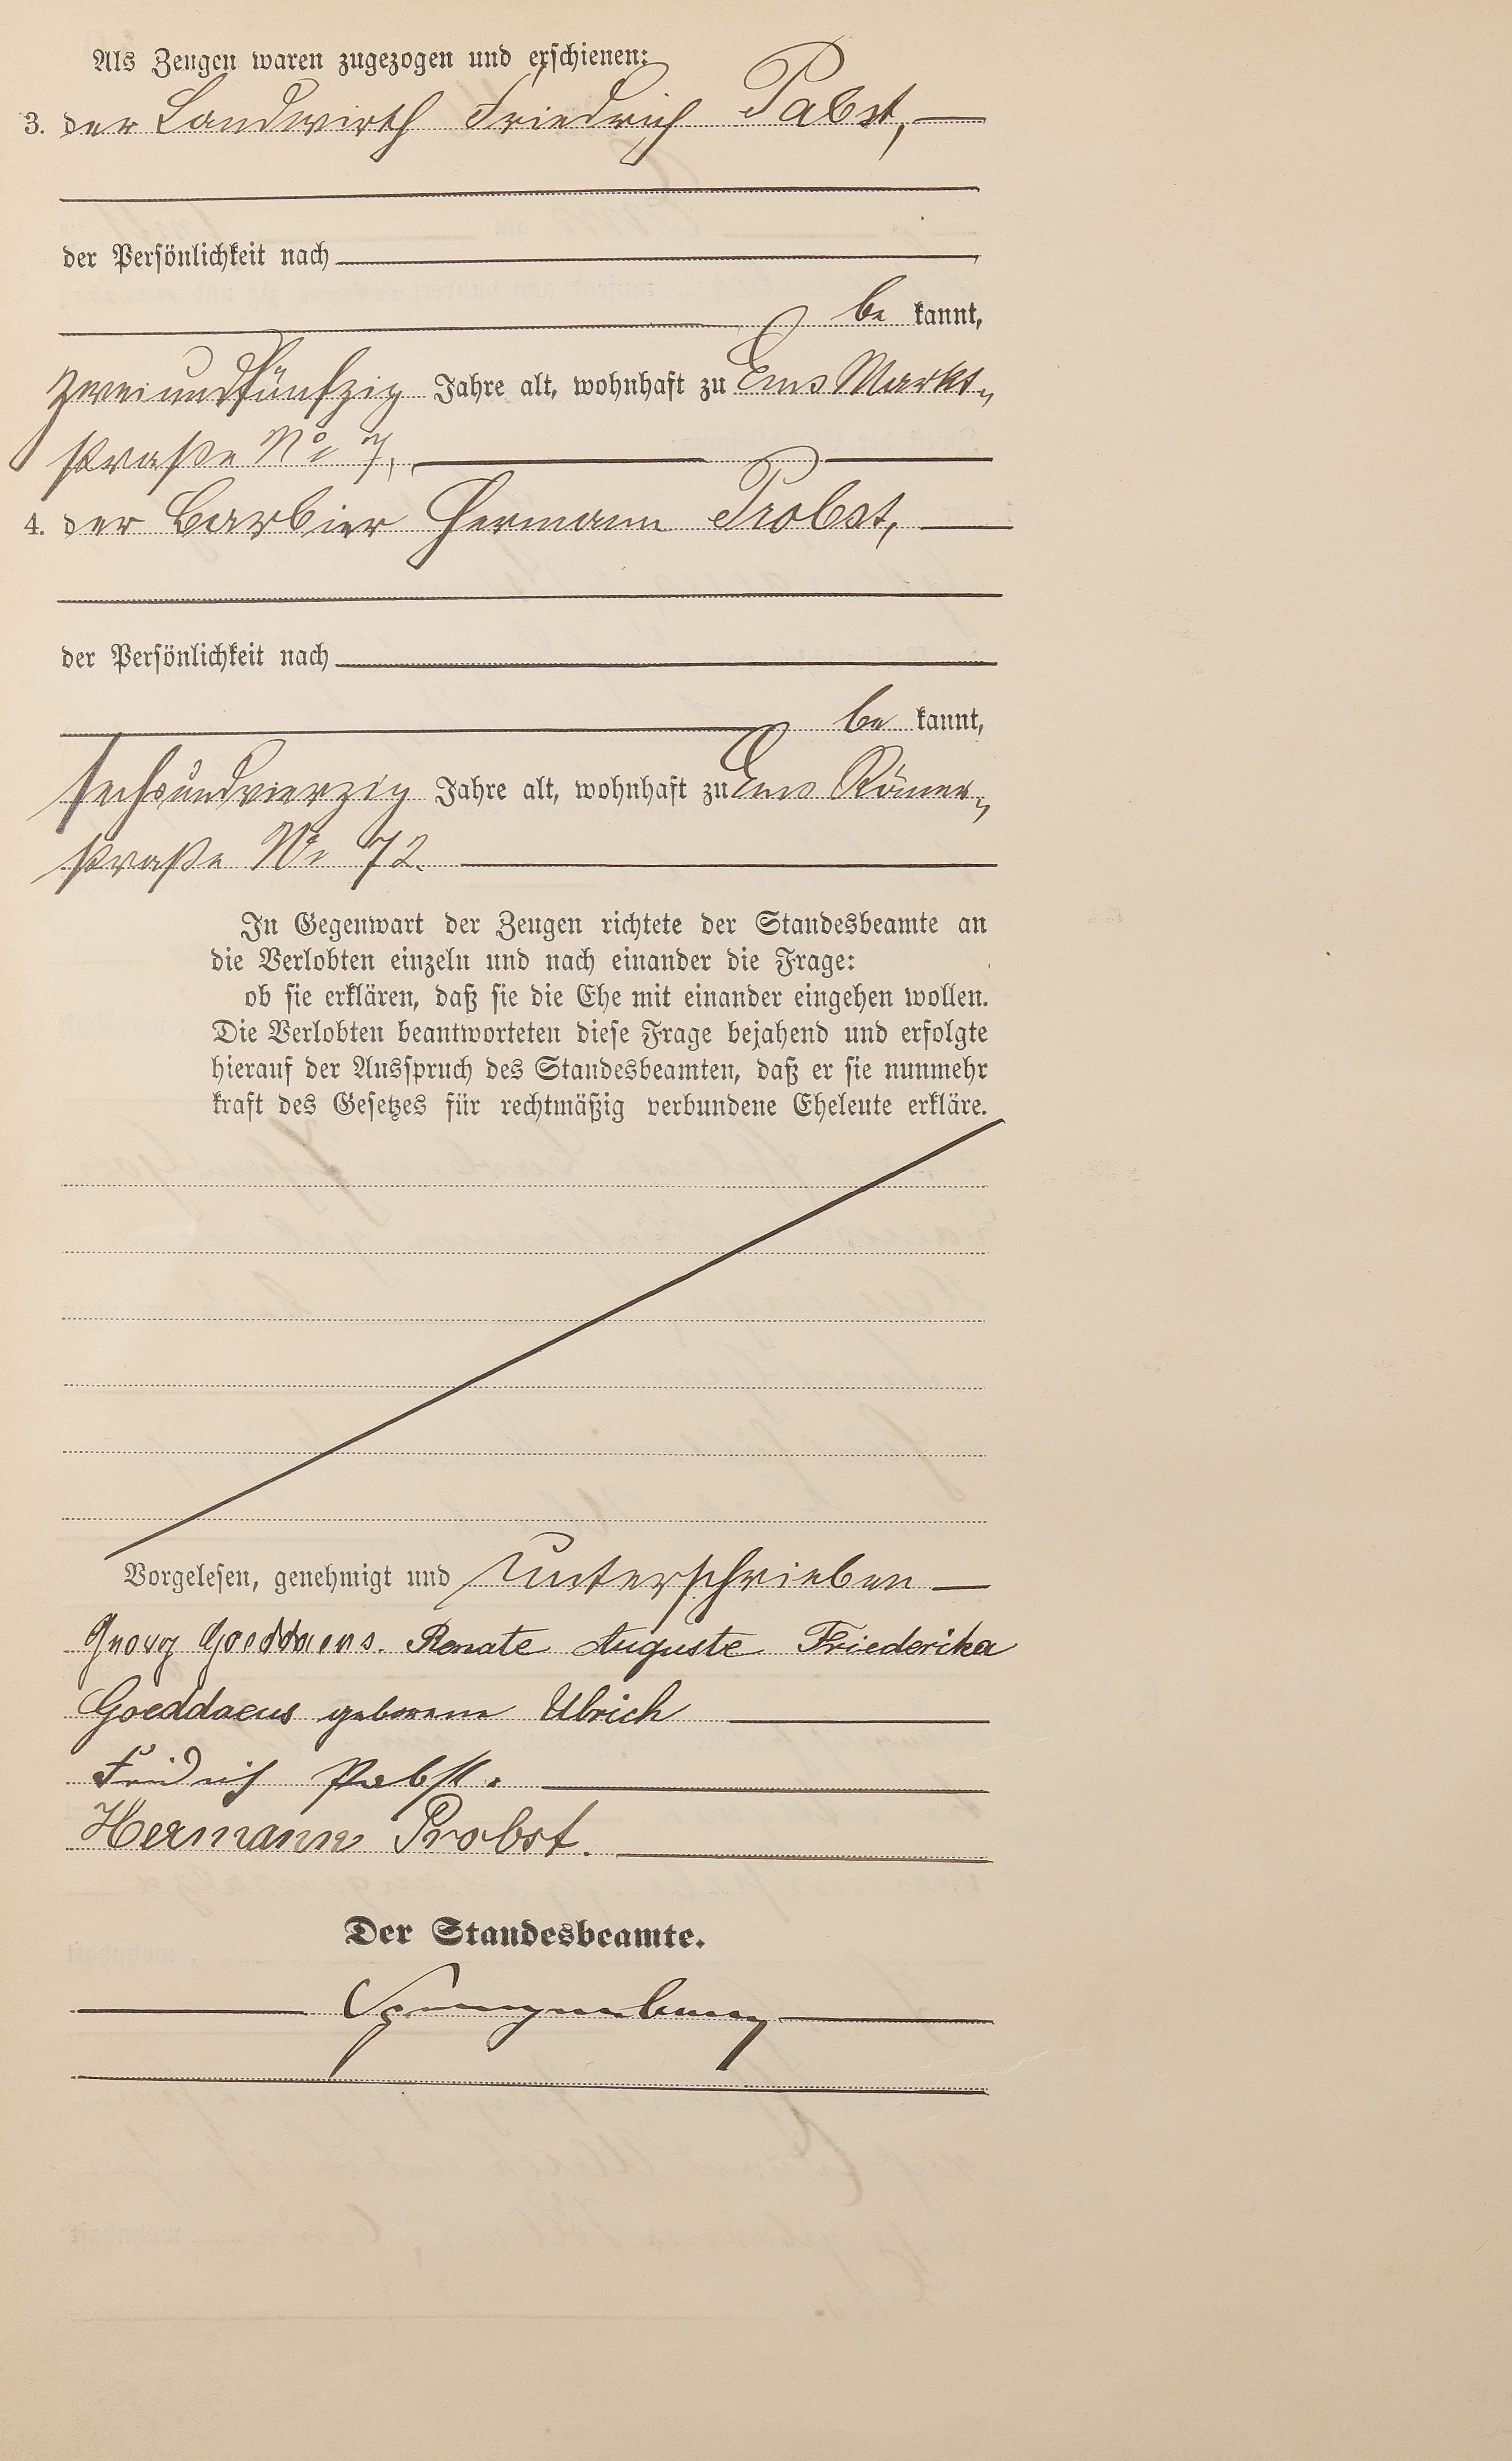 Als Zeugen waren zugezogen und erschienen:
3. der Landwirth Friedrich Pabst,
der Persönlichkeit nach
be kannt,
zweiundfünfzig Jahre alt, wohnhaft zu Ems Markt-
straße No 7,
4. der Barbier Hermann Probst,
der Persönlichkeit nach
be kannt,
sechsundvierzig Jahre alt, wohnhaft zu Ems Römer-
straße No 72.
In Gegenwart der Zeugen richtete der Standesbeamte an
die Verlobten einzeln und nach einander die Frage:
ob sie erklären, daß sie die Ehe mit einander eingehen wollen.
Die Verlobten beantworteten diese Frage bejahend und erfolgte
hierauf der Ausspruch des Standesbeamten, daß er sie nunmehr
kraft des Gesetzes für rechtmäßig verbundene Eheleute erkläre.
Vorgelesen, genehmigt und unterschrieben
Georg Goeddaeus. Renate Auguste Friederika
Goeddaeus geborene Ulrich
Friedrich Pabst.
Hermann Probst.
Der Standesbeamte.
Spangenberg